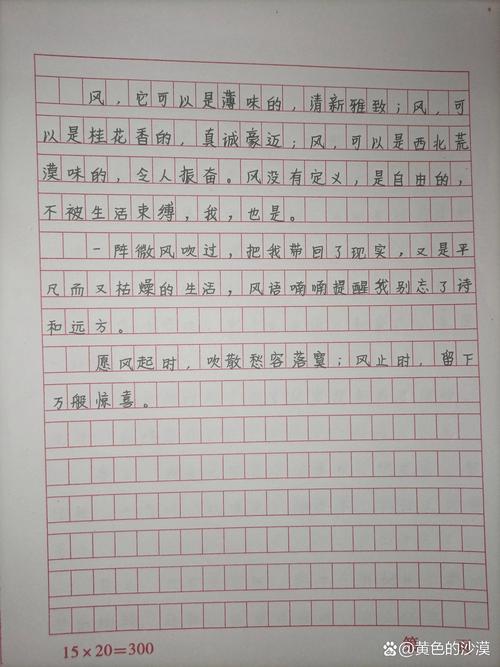 风，它可以是薄味的，清新雅致；风，可
以是桂花香的，真诚豪迈；风，可以是西北荒
漠味的，令人振奋。风没有定义，是自由的，
不被生活束缚，我，也是。
一阵微风吹过，把我带回了现实，又是平
凡而又枯燥的生活，风语喃喃提醒我别忘了诗
和远方。
愿风起时，吹散愁容落寞；风止时，留下
万般惊喜。
15×20=300
第 页
@黄色的沙漠